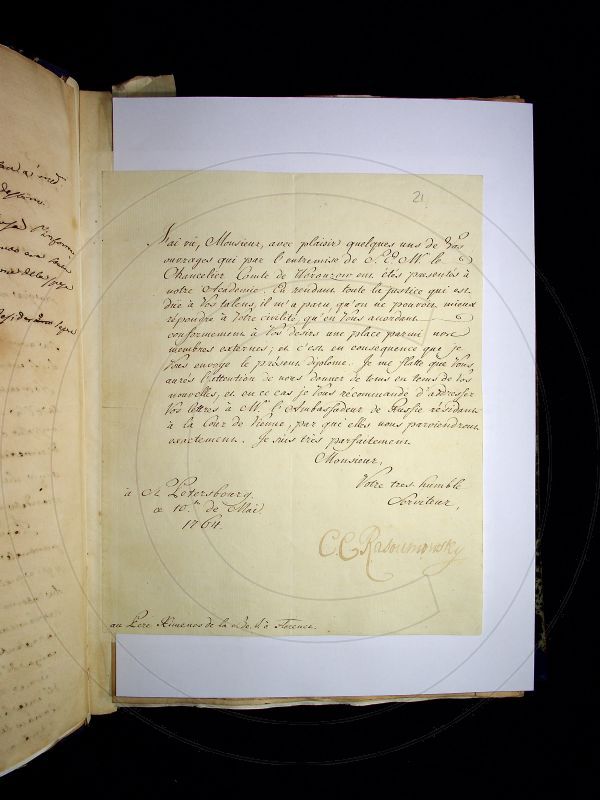 21
J'ai vû, Monsieur, avec plaisir quelques uns de Vos
ouvrages qui par l'entremise de S. E. M. le
Chancelier Comte de Woronzow ont étés presentés à
notre Academie. En rendant toute la justice qui est
düe à Vos talens, il m'a paru qu'on ne pouvoit mieux
répondre à Votre civilité, qu'en Vous accordant
conformement à Vos desirs une place parmi nos
membres externes; et c'est en consequence que je
Vous envoye le présent diplome. Je me flatte que Vous
aurés l'attention de nous donner de tems en tems de Vos
nouvelles, et en ce cas je Vous recommande d'addresser
Vos lettres à M. l'Ambassadeur de Russie résidant
à la Cour de Vienne, par que elles nous parviendront
exactement. Je suis tres parfaitement
Monsieur,
Votre tres humble
Serviteur,
à St Petersbourg
ce 10. de Mai
1764.
C C Rasoumowsky
au Pere Ximenes de la à Florence.